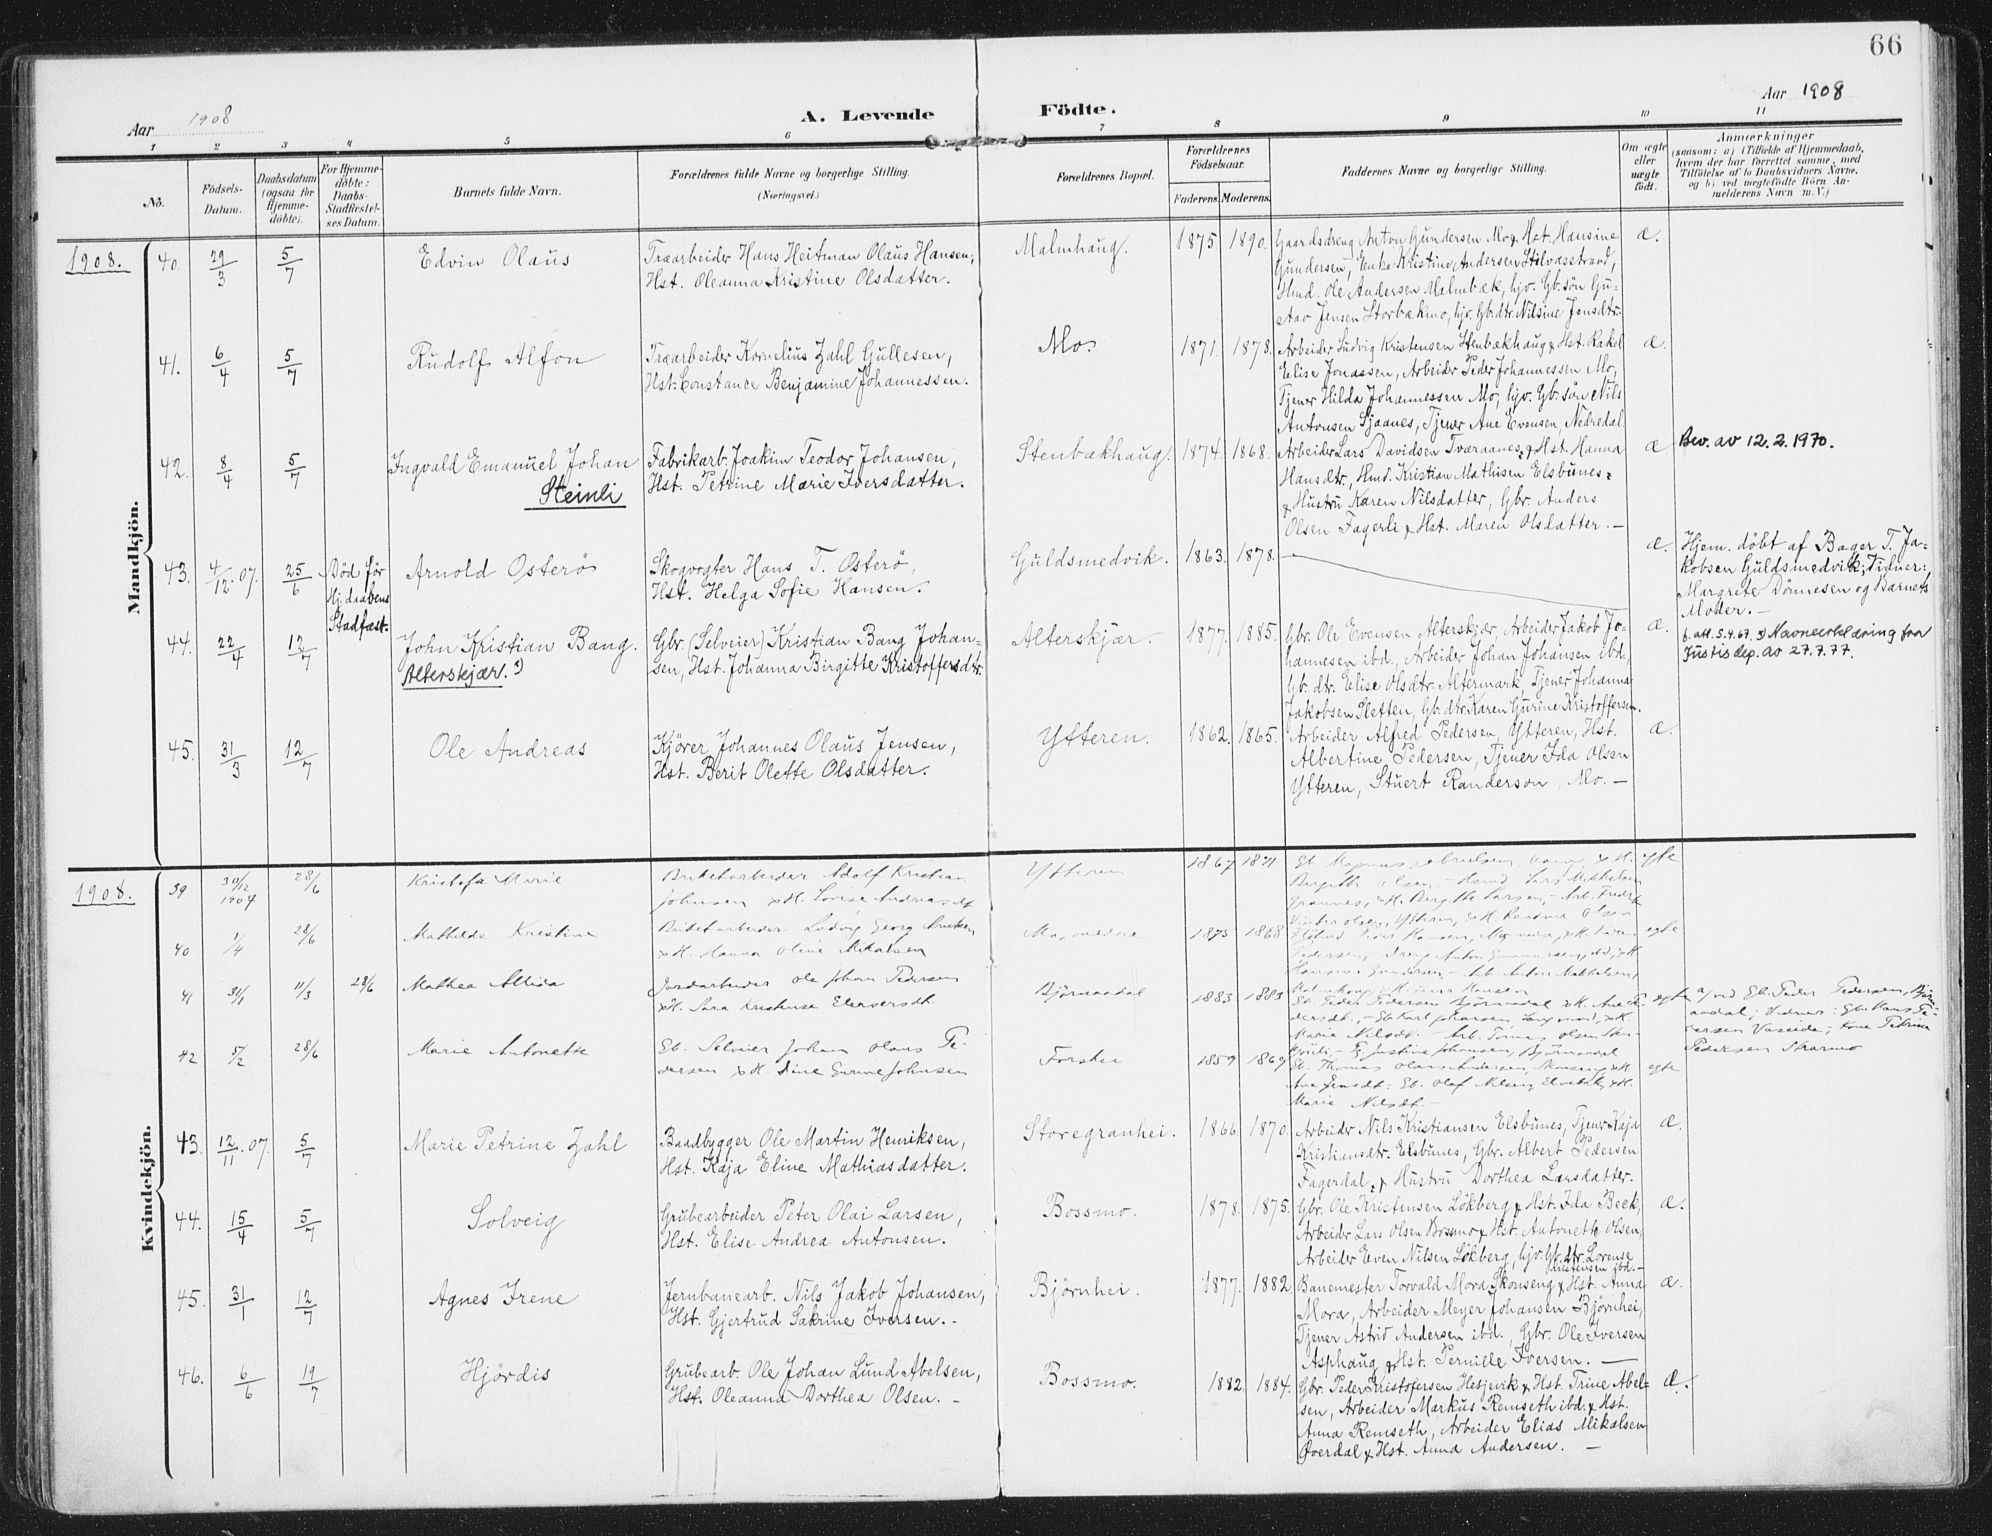 66
Aar 1908
A. Levende Födte.
Aar 1908
1 2 3 4 5 6 7 8 9 10 11
No.
Födsels-
Datum.
Daabsdatum
(ogsaa for
Hjemme-
döbte).
For Hjemme-
döbte:
Daabs-
Stadfæstel-
ses Datum.
Barnets fulde Navn.
Forældrenes fulde Navne og borgerlige Stilling.
(Næringsvei.)
Forældrenes Bopæl.
Forældrenes
Födselsaar.
Faderens. Moderens.
Faddernes Navne og borgerlige Stilling.
Om ægte
eller
uægte
födt.
Anmærkninger
(saasom: a) i Tilfælde af Hjemmedaab,
hvem der har forrettet samme, med
Tilföielse af to Daabsvidners Navne,
og b) ved uægtefödte Börn An-
melderens Navn m. V.)
Mandkjön.
1908. 40. 29/3 5/7 Edvin Olaus
Træarbeider Hans Heitman Olaus Hansen,
Hst. Oleanna Kristine Olsdatter.
Malmhaug. 1875. 1890.
Gaardsdreng Anton Gundersen Mo, Hst. Hansine
Gundersen, Enke Kristine Andersen Stilvasstrand,
Hmd. Ole Andersen Malmbæk, hjv. Gb. søn Gu-
stav Jensen Storbækmo, hjv. Gb.dtr. Nilsine Jensdtr.
Æ.
41. 6/4 5/7 Rudolf Alfon
Træarbeider Kornelius Zahl Gullesen,
Hst. Constance Benjamine Johannessen.
Mo. 1871. 1878.
Arbeider Ludvig Kristensen Stenbækhaug & Hst. Rakel
Elise Jonassen, Arbeider Peder Johannessen Mo,
Tjener Hilda Johannessen Mo, hjv. Gb. søn Nils
Antonsen Sjaanes, Tjener Ane Evensen, Nedredal
Æ.
42. 8/4 5/7 Ingvald Emanuel Johan
Steinli
Fabrikarb. Joakim Teodor Johansen,
Hst. Petrine Marie Iversdatter.
Stenbækhaug. 1874. 1868.
Arbeider Lars Davidsen Tværaanes, & Hst. Hanna
Hansdtr, Hmd. Kristian Mathisen Elsbunes
& Hustru Karen Nilsdatter, Gbr. Anders
Olsen Fagerli & Hst. Maren Olsdatter. —
Æ. Bev. av 12.2.1970.
43. 4/12 07. 25/6 Død før
Hj.daabens
Stadfæst.
Arnold Osterø
Skogvogter Hans T. Osterø,
Hst. Helga Sofie Hansen.
Guldsmedvik. 1863. 1878. —
Æ. Hjem. døbt af Bager T. Ja-
kobsen Guldsmedvik; Vidner:
Margrete Dønnesen og Barnets
Moder. —
44. 22/4 12/7 John Kristian Bang.
Alterskjær.
Gbr. (Selveier) Kristian Bang Johan-
sen, Hst. Johanna Birgitte Kristoffersdtr.
Alterskjær. 1877. 1885.
Gbr. Ole Evensen Alterskjær, Arbeider Jakob Jo-
hannesen ibd., Arbeider Johan Johansen ibd,
Gb. dtr. Elise Olsdtr Altermark, Tjener Johanna
Jakobsen Sletten, Gb.dtr Karen Gurine Kristoffersen.
Æ. f. att. 5.4.67. Navneerklæring fra
Justisdep. av 27.7.77.
45. 31/3 12/7 Ole Andreas
Kjører Johannes Olaus Jensen,
Hst. Berit Olette Olsdatter.
Ytteren. 1862. 1865.
Arbeider Alfred Pedersen, Ytteren, Hst.
Albertine Pedersen, Tjener Ida Olsen
Ytteren, Stuert Randerson, Mo. —
Æ.
Kvindekjön.
1908. 39 30/12 1904 28/6
Marie
Adolf Kristian
Johnsen & H. Lovise
Ytteren 1867 1871
Birgitte Olsen
egte
40 1/4 28/6 Mathilde Kristine
Ludvig Georg
& H. Hanna Oline Mikalsen
Mo, 1875 1868
egte
41 31/1 11/3 28/6 Mathea Alida
Jordarbeider Ole Johan Pedersen
& H. Sara Kristense
Bjørnaadal 1883 1883
egte
a) ved Gb. Peder Pedersen, Bjørn-
aadal; Vidner: Gb. Hans Pe-
dersen Vaseide; Kone Petrine
Pedersen
42 5/2 28/6 Marie Antonette
Gb. Selveier Johan Olaus Pe-
dersen & H. Johnsen
Forshei 1859 1869
Gb. Thomas Olaus Andersen,
Marie Nilsdt. —
egte
43. 12/11 07. 5/7 Marie Petrine Zahl
Baadbygger Ole Martin Henriksen,
Hst. Kaja Eline Mathiasdatter.
Storegranhei. 1866. 1870.
Arbeider Nils Kristiansen Elsbunes, Tjener Kaja
Kristiansdtr. Elsbunes, Gbr. Albert Pedersen
Fagerdal, & Hustru Dorthea Larsdatter.
Æ.
44. 15/4 5/7 Solveig
Grubearbeider Peter Olai Larsen,
Hst. Elise Andrea Antonsen.
Bossmo. 1878. 1875.
Gbr. Ole Kristensen Løkberg & Hst. Ida Beck,
Arbeider Lars Olsen Bossmo & Hst. Antonette Olsen,
Arbeider Even Nilsen Løkberg, hjv. Gb.dtr. Lorense
Kristensen ibd. —
Æ.
45. 31/1 12/7 Agnes Irene
Jernbanearb. Nils Jakob Johansen,
Hst. Gjertrud Sakrine Iversen. —
Bjørnhei. 1877. 1882.
Banemester Torvald Mora Skonseng & Hst. Anna
Mora, Arbeider Meyer Johansen Bjørnhei,
Tjener Astrid Andersen ibd., Gbr. Ole Iversen
Asphaug & Hst. Pernille Iversen. —
Æ.
46. 6/6 19/7 Hjørdis
Grubearb. Ole Johan Lund Abelsen,
Hst. Oleanna Dorthea Olsen. —
Bossmo. 1882. 1884.
Gbr. Peder Kristofersen Hesjevik & Hst. Trine Abel-
sen, Arbeider Markus Remseth ibd. & Hst.
Anna Remseth, Arbeider Elias Mikalsen
Øverdal & Hst. Anna Andersen. —
Æ.